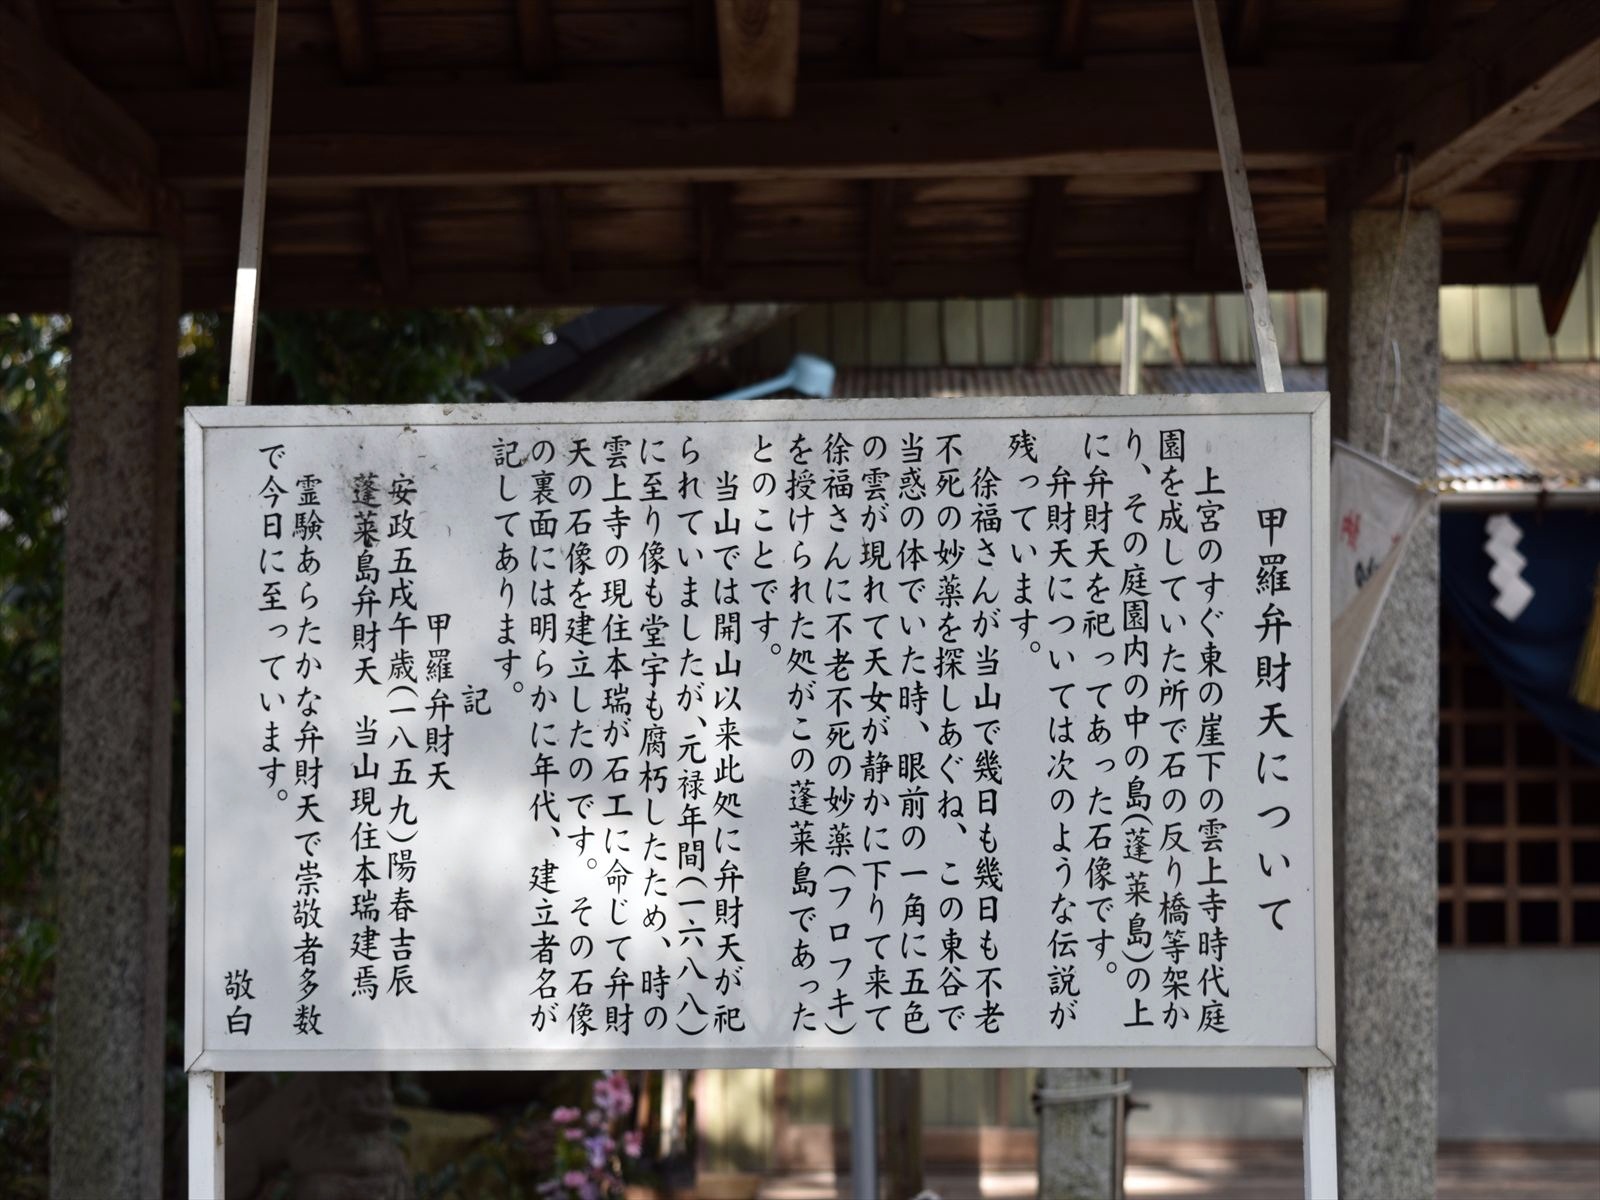 甲羅弁財天について
上宮のすぐ東の崖下の雲上寺時代庭
園を成していた所で石の反り橋等架か
り、その庭園内の中の島(蓬莱島)の上
に弁財天を祀ってあった石像です。
弁財天については次のような伝説が
残っています。
徐福さんが当山で幾日も幾日も不老
不死の妙薬を探しあぐね、この東谷で
当惑の体でいた時、眼前の一角に五色
の雲が現れて天女が静かに下りて来て
徐福さんに不老不死の妙薬(フロフキ)
を授けられた処がこの蓬莱島であった
とのことです。
当山では開山以来此処に弁財天が祀
られていましたが、元禄年間(一六八八)
に至り像も堂宇も腐朽したため、時の
雲上寺の現住本瑞が石工に命じて弁財
天の石像を建立したのです。その石像
の裏面には明らかに年代、建立者名が
記してあります。
記
甲羅弁財天
安政五戌午歳(一八五九)陽春吉辰
蓬莱島弁財天　当山現住本瑞建焉
霊験あらたかな弁財天で崇敬者多数
で今日に至っています。
敬白